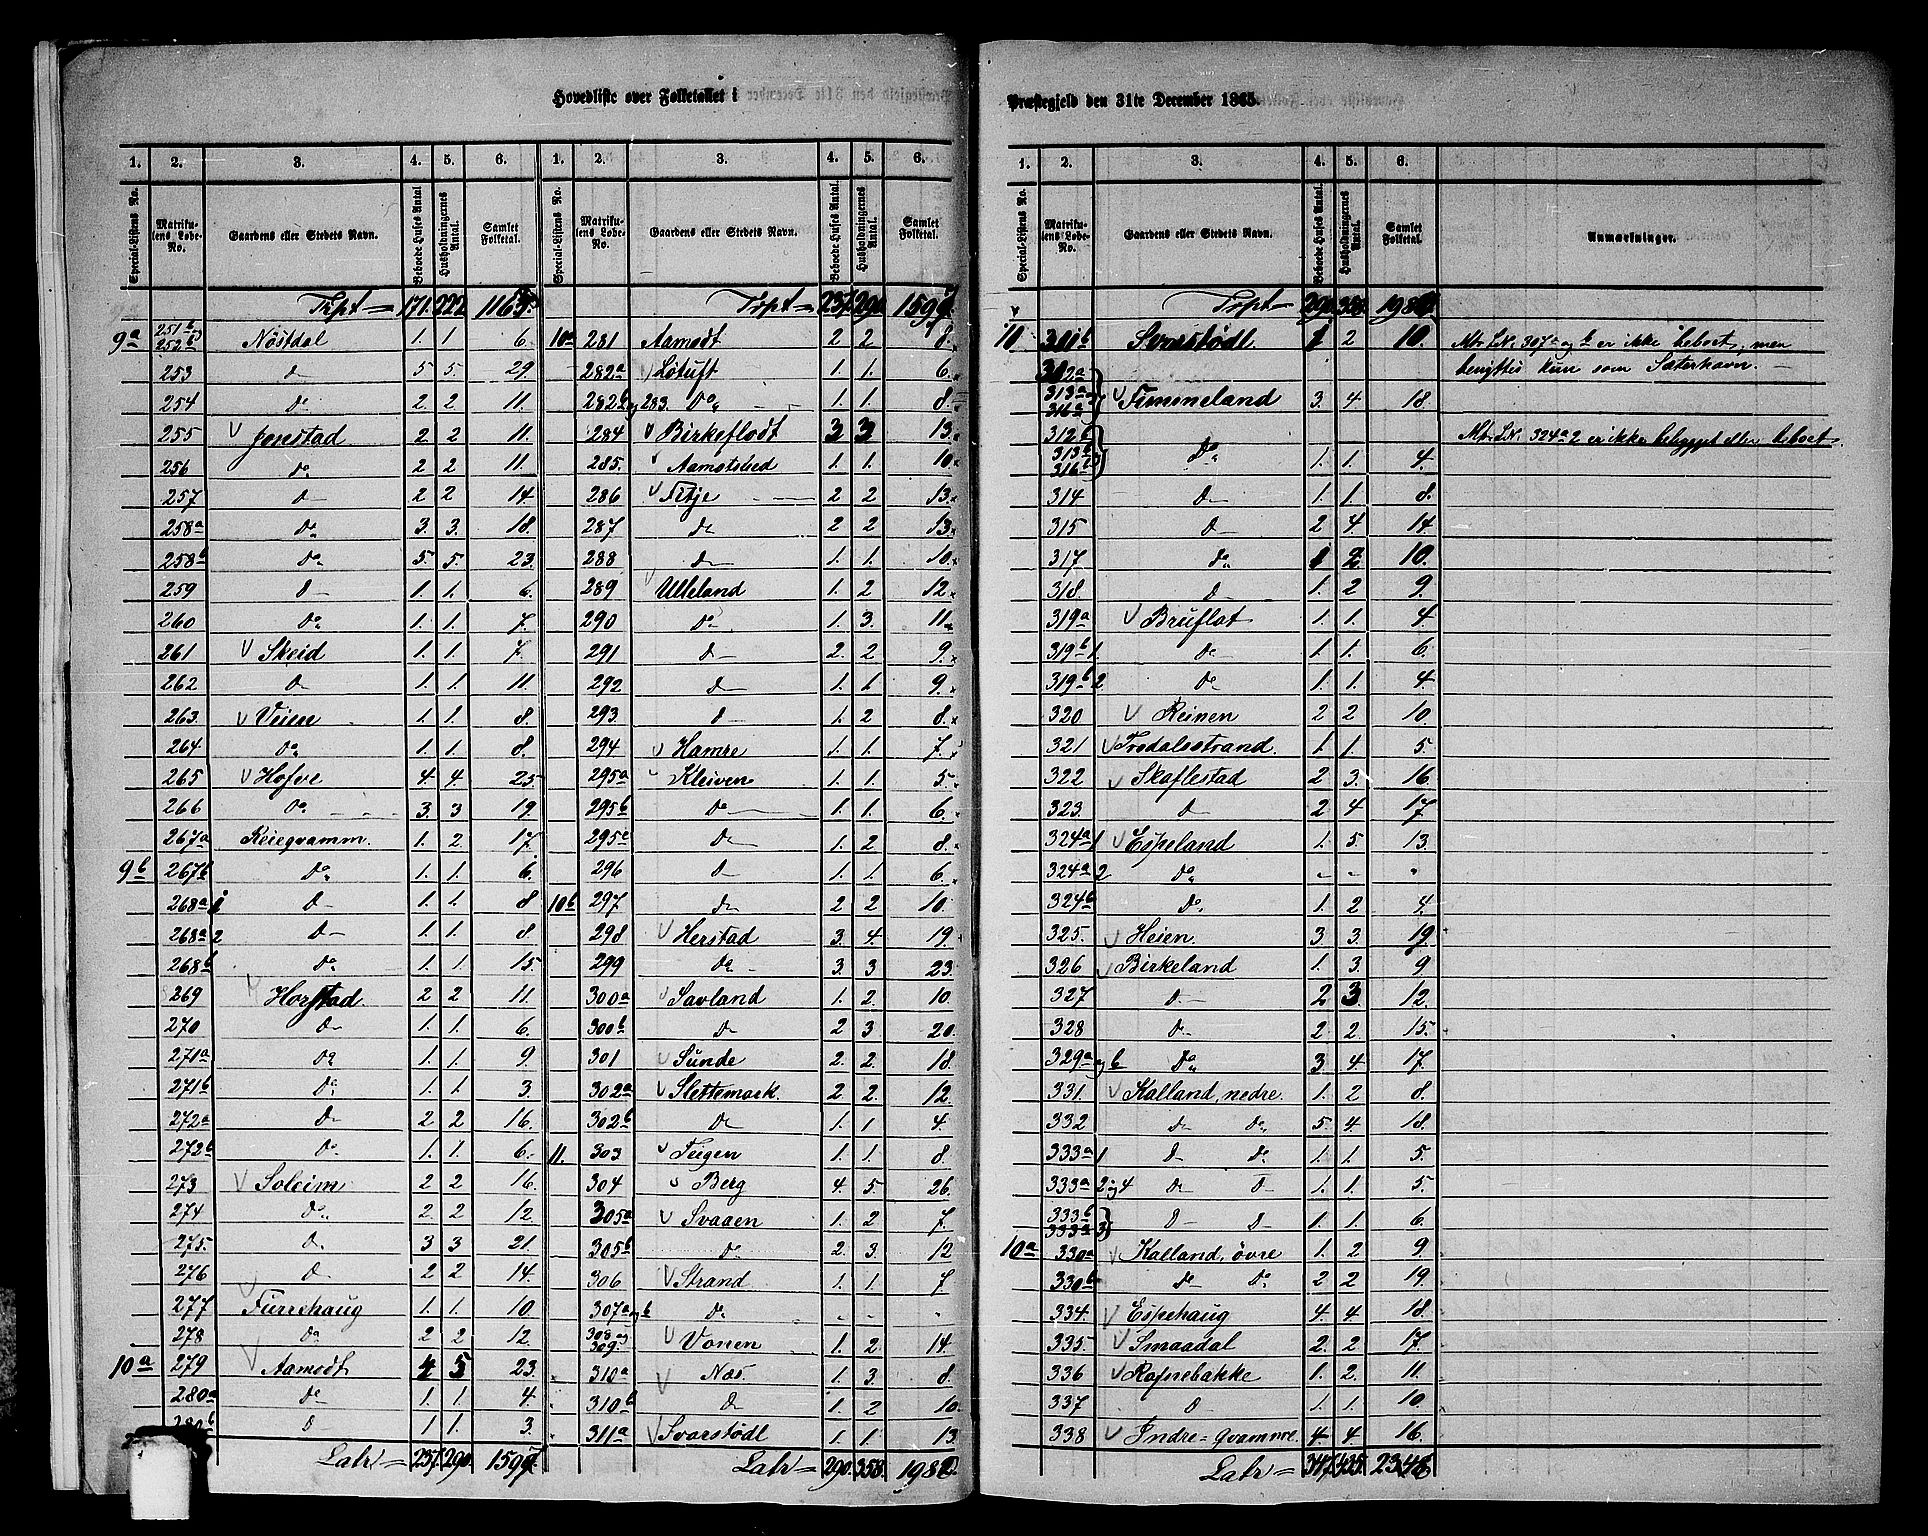 Hovedliste over Folketallet i
1. 2. 3. 4. 5. 6. 1. 2. 3. 4. 5. 6.
Special-Listens No. Matrikulens Løbe-No. Gaardens eller Stedets Navn. Beboede Huses Antal. Husholdningernes Antal. Samlet Folketal. Special-Listens No. Matrikulens Løbe-No. Gaardens eller Stedets Navn. Beboede Huses Antal. Husholdningernes Antal. Samlet Folketal.
Trpt = 171. 222 Trpt = 237. 290.
9a 251b og 252b Nöstdal 1. 1 6. 10a 281 Aamodt 2 2 8.
253 d 5. 5. 29. 282a Løtuft 1. 1. 6.
254 do 2. 2 11. 282b og 283. Do 1. 1. 8.
255 Jonstad 2. 2 11. 284 Birkeflodt 3 3 13.
256 do 2 2 11. 285. Aamotsted 1. 1. 10.
257 d 2 2 14. 286 Fitje 2 2 13.
258a do 3. 3. 18. 287 do 2 2 13.
258b do 5. 5. 23. 288 d 1. 1. 10.
259 d 1. 1. 6. 289 Ulleland 1. 2 12.
260 do 1. 1. 7. 290 do 1. 3. 11.
261 Skeid 1. 1. 7. 291 d 2. 2 9.
262 d 1. 1. 11. 292 d 1. 1 9.
263. Veien 1. 1. 8. 293. d 1. 2 8.
264 do 1. 1. 8. 294 Hamre 1. 1. 7.
265 Hofve 4. 4. 25. 295a Kleiven 1. 1. 5.
266 do 3. 3 19. 295b do 1. 1. 6.
267a Reieqvamm. 1. 2 17. 295c do 1. 2 8.
9b 267b do 1. 1. 6. 296 d 1. 1. 6.
268a 1 d 1. 1. 8 10b 297 do 2 2 10.
268a 2 d 1. 1 8. 298 Herstad 3. 4. 19.
268b do 1. 1. 15. 299 do 3. 3 23.
269 Horstad 2 2 11. 300a Savland 1. 2. 10.
270 d 1. 1. 6. 300b d 2 3. 20.
271a do 1. 1. 9. 301 Sunde 2. 2. 18.
271b do 1. 1. 3. 302a Slettemark. 2 2. 12.
272a d 2 2 16. 302b do 1. 1 4.
272b do 1. 1. 6. 11. 303 Teigen 1. 1 8.
273 Soleim 2 2 16. 304 Berg 4. 5. 26.
274 do 2. 2 12. 305a Svaaen 1. 2 7.
275. d 3 3 21. 305b do 2. 3. 12
276 d 2 2 14. 306 Strand 1. 1. 7.
277 Furrehaug 1. 1. 10. 307a og b do - - -
278 do 2 2 12. 308 og 309. Vonen 1. 2. 14.
10a 279 Aamodt 4 5 23. 310a Næs. 1. 3. 8.
280a do 1. 1 4. 310b d 1. 2 10.
280b d 1 1. 3. 311a Svarstödl 1. 1. 13.
Latr = 237. 290. Latr = 290. 358.

Præstegjeld den 31te December 1865.
1. 2. 3. 4. 5. 6.
Special-Listens No. Matrikulens Løbe-No. Gaardens eller Stedets Navn. Beboede Huses Antal. Husholdningernes Antal. Samlet Folketal. Anmærkninger.
Trpt = 290. 358.
10 311b Svarstödl 1 2 10. Mtr. L.N. 307a og b er ikke beboet, men
312a benyttes kun som Sæterhavn.
313a og 316a Timmeland 3. 4 18.
312b Mtr. L.N. 324a2 er ikke bebygget eller beboet.
313b 316b Do 1. 1. 4.
314 d 1. 1. 8.
315 d 2 4. 14.
317 do 1 2 10.
318. d 1. 2 9.
319a Bruflot 1. 1. 4
319b 1. do 1. 1. 6.
319b 2 do 1. 1. 4.
320 Reinen 2 2 10.
321 Trodalsstrand. 1. 1. 5.
322 Skaflestad 2 3. 16
323. d 2 4. 17
324a 1 Espeland 1. 5. 13.
324a 2 do - - -
324b do 1. 2 4.
325. Heien. 3 3. 19.
326 Birkeland 1. 3. 9
327 d 2 3. 12.
328 d 2. 2. 15.
329a og b do 3 4. 17.
331. Kalland, nedre. 1. 2 8.
332 do do 5. 4. 18.
333a 1 d do 1. 1. 5.
333a 2 og 4 do d 1. 1. 5.
333b
333a 3 d d 1. 1. 6.
10a 330a Kalland, övre 1. 2 9.
330b do do 2 2 19.
334. Espehaug 4. 4. 18.
335. Smaadal 2. 2 17.
336 Rognebakke 1. 2. 11.
337 d 1. 1. 10.
338 Indre-Qvamme 4. 4. 16.
Latr = 347. 435. 2348